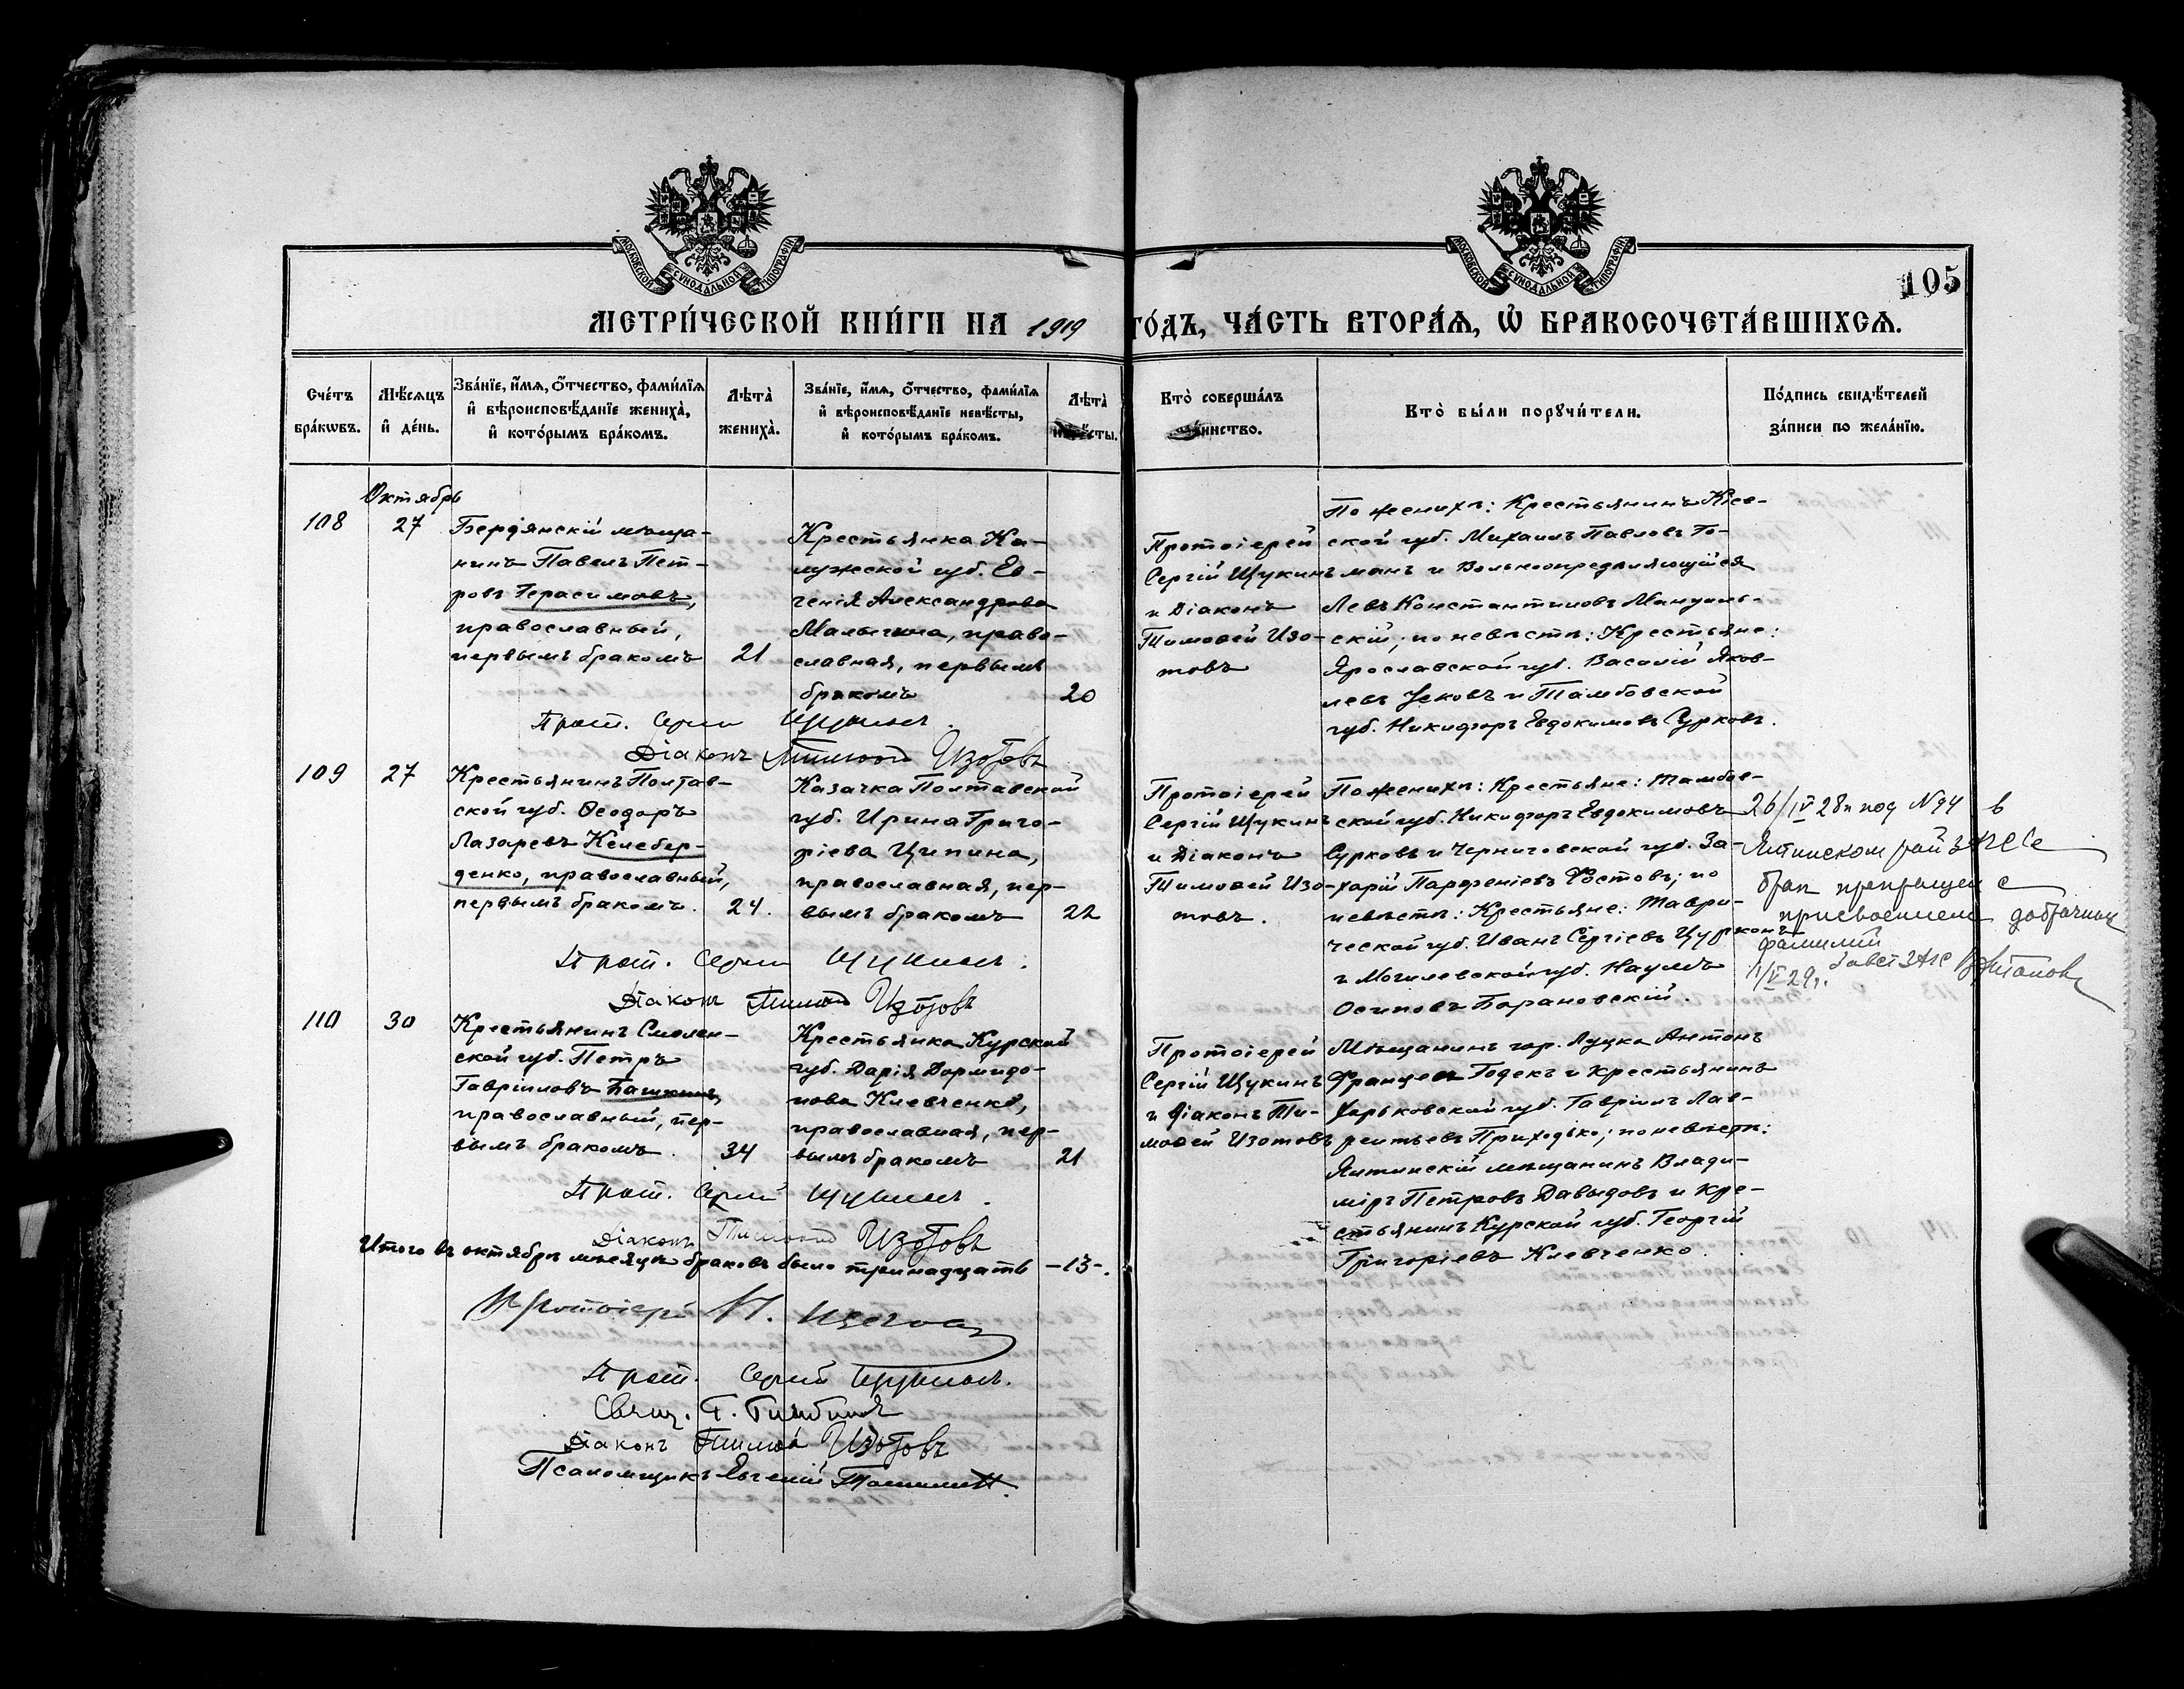 МОСКОВСКОЙ СѴНОДАЛЬНОЙ ТИПОГРАФІИ
МОСКОВСКОЙ СѴНОДАЛЬНОЙ ТИПОГРАФІИ
105
МЕТРИ́ЧЕСКОЙ КНИ́ГИ НА 1919 ГО́ДЪ, ЧА́СТЬ ВТОРА́Я, Ѽ БРАКОСОЧЕТА́ВШИХСЯ.
Сче́тъ бра́кѡвъ.
Мѣ́сяцъ и҆ де́нь.
Зва́нїе, и҆́мя, ѻ҆́тчество, фами́лїя
и҆ вѣроисповѣ́данїе жениха̀,
и҆ кото́рымъ бра́комъ.
Лѣта̀ жениха̀.
Зва́нїе, и҆́мя, ѻ҆́тчество, фами́лїя
и҆ вѣроисповѣ́данїе невѣ́сты,
и҆ кото́рымъ бра́комъ.
Лѣта̀ невѣ́сты.
Кто̀ соверша́лъ таинство.
Кто̀ бы́ли порꙋчи́тели.
По́дпись свидѣ́телей
за́писи по жела́нїю.
Октябрь
108
27
Бердянскій мѣща-
нинъ Павелъ Пет-
ровъ Герасимовъ,
православный,
первымъ бракомъ
21
Крестьянка Ка-
лужской губ. Ев-
генія Александрова
Малыгина, право-
славная, первымъ
бракомъ
20
Протоіерей
Сергій Щукинъ
и Діаконъ
Тимоѳей Изо-
товъ
По женихѣ: Крестьянинъ Кіев-
ской губ. Михаилъ Павловъ Го-
манъ и Вольноопредѣляющійся
Левъ Константиновъ
скій; по невѣстѣ: Крестьяне:
Ярославской губ. Василій Яков-
левъ Усковъ и Тамбовской
губ. Никифоръ Евдокимовъ Сурковъ.
Прот. Сергій Щукинъ.
Діаконъ Тимоѳей Изотовъ
109
27
Крестьянинъ Полтав-
ской губ. Ѳеодоръ
Лазаревъ Келебер-
денко, православный,
первымъ бракомъ.
24.
Казачка Полтавской
губ. Ирина Григо-
ріева Ципина,
православная, пер-
вымъ бракомъ
22
Протоіерей
Сергій Щукинъ
и Діаконъ
Тимоѳей Изо-
товъ.
По женихѣ: Крестьяне: Тамбов-
ской губ. Никифоръ Евдокимовъ
Сурковъ и Черниговской губ. За-
харій Парфеніевъ Фостовъ; по
невѣстѣ: Крестьяне: Таври-
ческой губ. Иванъ Сергіевъ Цурканъ
и Могилевской губ. Наумъ
Осиповъ Барановскій.
26/IV 28г под N 94 в
Ялтинском рай ЗАГСе
брак прекращен с
присвоением добрачных
фамилий
1/IV 29г. Завет ЗАГС
Прот. Сергій Щукинъ.
Діаконъ Тимоѳей Изотовъ
110
30
Крестьянинъ Смолен-
ской губ. Петръ
Гавріиловъ Башкинъ,
православный, пер-
вымъ бракомъ.
34
Крестьянка Курской
губ. Дарія Дормидо-
нова Клевченко,
православная, пер-
вымъ бракомъ
21
Протоіерей
Сергій Щукинъ
и Діаконъ Ти-
моѳей Изотовъ
Мѣщанинъ гор. Луцка Антонъ
Францевъ Годекъ и крестьянинъ
Харьковской губ. Гавріилъ Лав-
рентьевъ Приходько; по невѣстѣ:
Ялтинскій мѣщанинъ Влади-
міръ Петровъ Давыдовъ и кре-
стьянинъ Курской губ. Георгій
Григоріевъ Клевченко.
Прот. Сергій Щукинъ.
Діаконъ Тимоѳей Изотовъ
Итого въ октябрѣ мѣсяцѣ браковъ было тринадцать -13-.
Протоіерей П.
Прот. Сергій Щукинъ.
Свящ. Г.
Діаконъ Тимоѳей Изотовъ
Псаломщикъ Евгеній